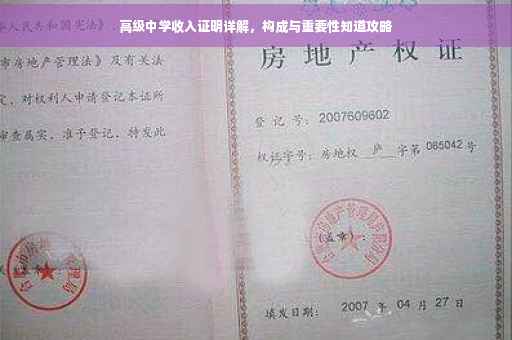 高级中学收入证明详解，构成与重要性知道攻略
人民共和国宪法》
市房地产管理法》及有关法
定，对权利人申请登记本证所
审查属实，准予登记，特发此
房地产权证
登记号：2007609602
权证字号：房地权 庐 字第 065042 号
（盖章）：
填发日期： 2007 年 04 月 27 日